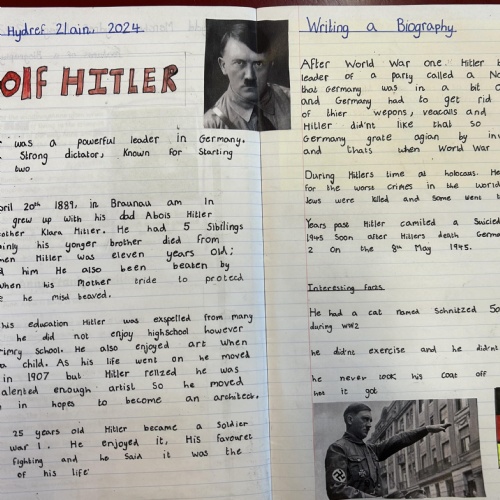 Hydref 21ain, 2024
OlF HITLER
was a powerful leader in Germany.
Strong dictator, known for Starting
two
pril 20th 1889, in Braunau am In
grew up with his dad Abois Hitler
other Klara Hitler. He had 5 Sibilings
ainly his yonger brother died from
men Hitler was eleven years old;
d him He also been beaten by
when his Mother tride to protecd
e he misd beaved.
his education Hitler was exspelled from many
he did not enjoy highschool however
rimry School. He also enjoyed art when
a child. As his life went on he moved
in 1907 but Hitler relized he was
alented enough artist So he moved
in hopes to become an architeck.
25 years old Hitler became a Soldier
war 1. He enjoyed it. His favouret
fighting and he said it was the
of his life
Writing a Biography.
After World War one. Hitler b
leader of a party called a No
that Germany was in a bit o
and Germany had to get rid
of thier wepons, veacolls and
Hitler did'nt like that so
Germany grate agian by inv
and thats when World War
During Hitlers time at holocaus. He
for the worst crimes in the world
Jews were killed and some went t
Years past Hitler camited a Suicied
1945 Soon after Hitlers death Germa
2 on the 8th May 1945.
Interesting facts
He had a cat named Schnitzed So
during ww2
he did'nt exercise and he did'nt
he never took his coat off
hot it got